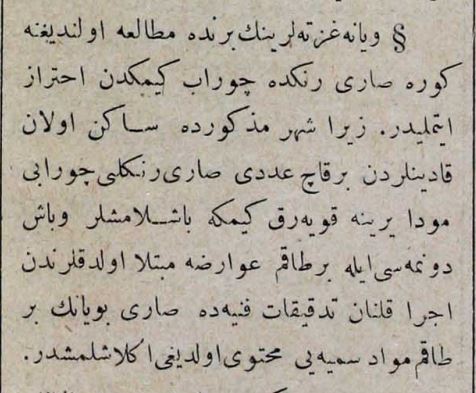 § ویانه غزته‌لرینك برنده مطالعه اولندیغنه
كوره صاری رنكده چوراب كیمكدن احتراز
ایتملیدر. زیرا شهر مذكورده ساكن اولان
قادینلردن برقاچ عددی صاری رنكلی چورابی
مودا یرینه قویه‌رق كیمكه باشلامشلر وباش
دونمه‌سی ایله برطاقم عوارضه مبتلا اولدقلرندن
اجرا قلنان تدقیقات فنیه‌ده صاری بویانك بر
طاقم مواد سمیه‌یی محتوی اولدیغی اكلاشلمشدر.